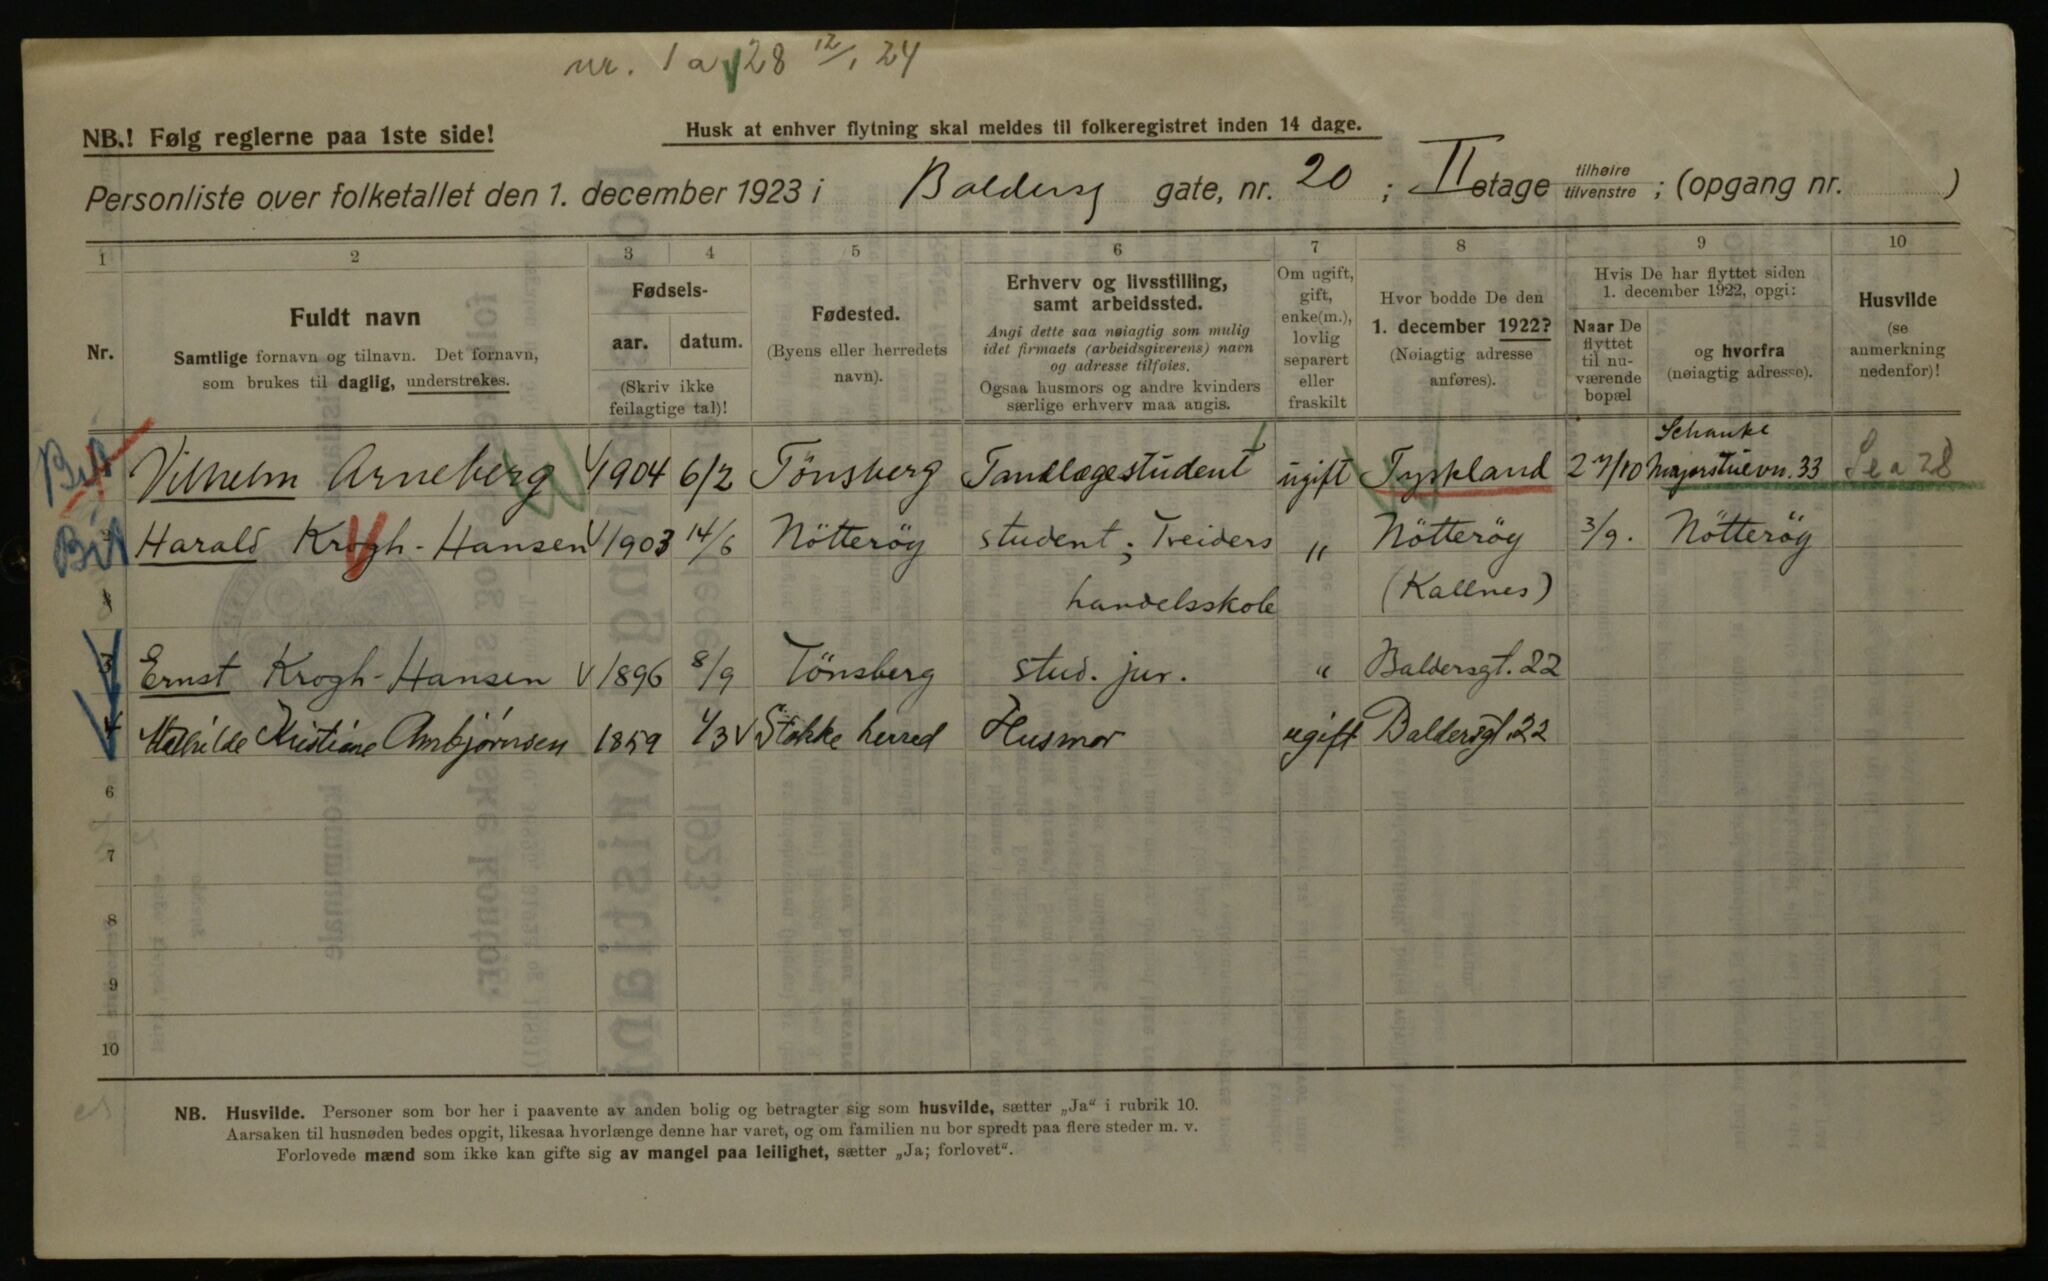 nr. 1 a 28 12/1 24
NB.! Følg reglerne paa 1ste side!
Husk at enhver flytning skal meldes til folkeregistret inden 14 dage.
Personliste over folketallet den 1. december 1923 i Baldersg gate, nr. 20 ; II etage tilhøire tilvenstre ; (opgang nr. )
1 2 3 4 5 6 7 8 9 10
Nr.
Fuldt navn
Samtlige fornavn og tilnavn. Det fornavn,
som brukes til daglig, understrekes.
Fødsels-
aar. datum.
(Skriv ikke
feilagtige tal)!
Fødested.
(Byens eller herredets
navn).
Erhverv og livsstilling,
samt arbeidssted.
Angi dette saa nøiagtig som mulig
idet firmaets (arbeidsgiverens) navn
og adresse tilføies.
Ogsaa husmors og andre kvinders
særlige erhverv maa angis.
Om ugift,
gift,
enke(m.),
lovlig
separert
eller
fraskilt
Hvor bodde De den
1. december 1922?
(Nøiagtig adresse
anføres).
Hvis De har flyttet siden
1. december 1922, opgi:
Naar De
flyttet
til nu-
værende
bopæl
og hvorfra
(nøiagtig adresse).
Husvilde
(se
anmerkning
nedenfor)!
Schanke
Vilhelm Arneberg 1904 6/2 Tönsberg Tandlægestudent ugift Tyskland 27/10 Majorstuevn. 33 Se a 28
2 Harald Krogh-Hansen 1903 14/6 Nötteröy student; Treiders " Nötteröy 3/9. Nötteröy
handelsskole (Kallnes)
3 Ernst Krogh-Hansen 1896 8/9 Tönsberg stud. jur. " Baldersgt. 22
4 Mathilde Kristiane Arnbjørnsen 1859 1/3 Stokke herred Husmor ugift Baldersgt. 22
6
7
8
9
10
NB. Husvilde. Personer som bor her i paavente av anden bolig og betragter sig som husvilde, sætter „Ja“ i rubrik 10.
Aarsaken til husnøden bedes opgit, likesaa hvorlænge denne har varet, og om familien nu bor spredt paa flere steder m. v.
Forlovede mænd som ikke kan gifte sig av mangel paa leilighet, sætter „Ja; forlovet“.